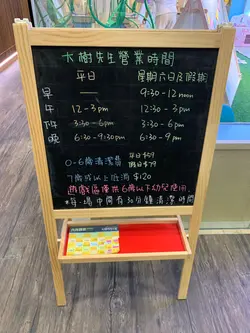 大樹先生營業時間
平日 星期六日及假期
早 — 9:30-12noon
午 12-3pm 12:30-3pm
下午 3:30-6pm 3:30-6pm
晚 6:30-9:30pm 6:30-9pm
0-6歲清潔費 平日$59
假日$79
7歲或以上低消 $120
遊戲區僅供6歲以下幼兒使用
*每場中間有30分鐘清潔時間